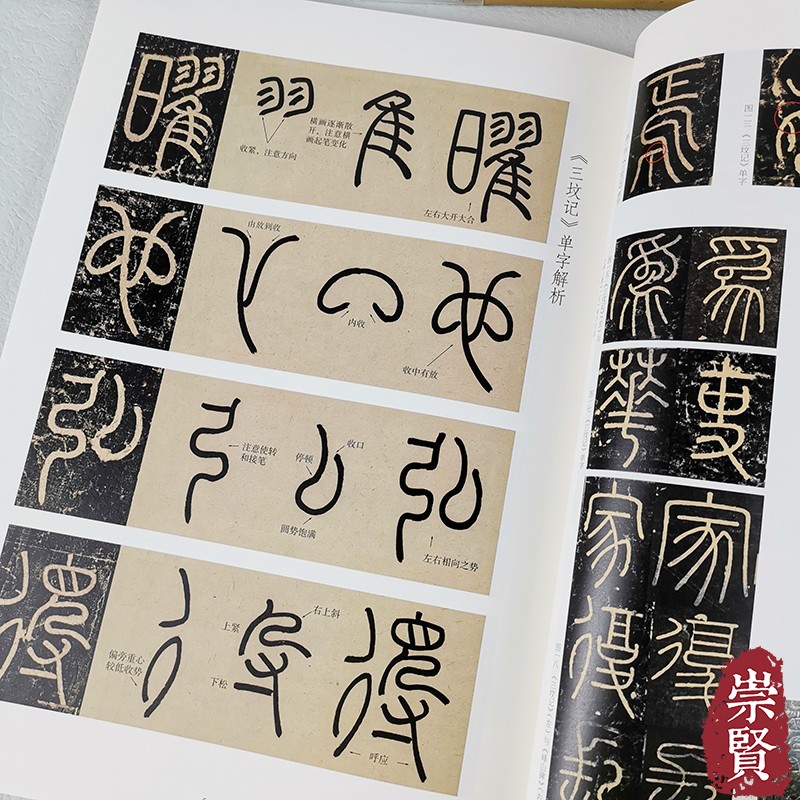 《三坟记》单字解析
曜
收紧，注意方向
横画逐渐散
开，注意横
画起笔变化
曜
左右大开大合
由放到收
内收
收中有放
弘
注意使转
和接笔
停顿
收口
圆势饱满
弘
左右相向之势
得
偏旁重心
较低收势
上紧
下松
右上斜
得
呼应
图一三《三坟记》单字
焉
為
華
家
家
得
得
崇賢